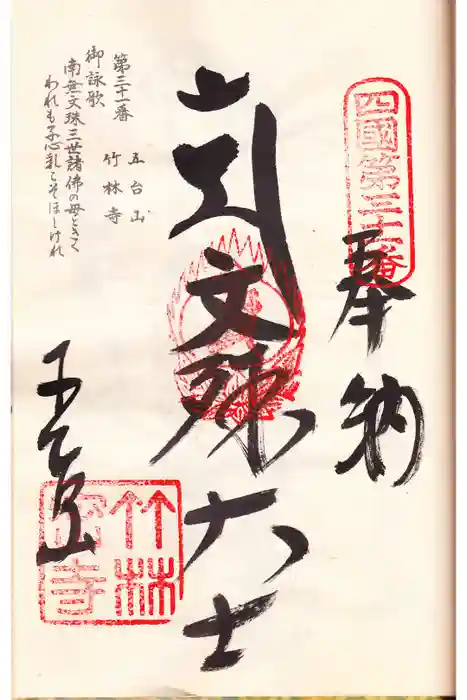 四國第三十一番
奉納
文殊大士
五台山
竹林
密寺
第三十一番
五台山
竹林寺
御詠歌
南無文珠三世諸佛の母ときく
われも子心乳こそほしけれ